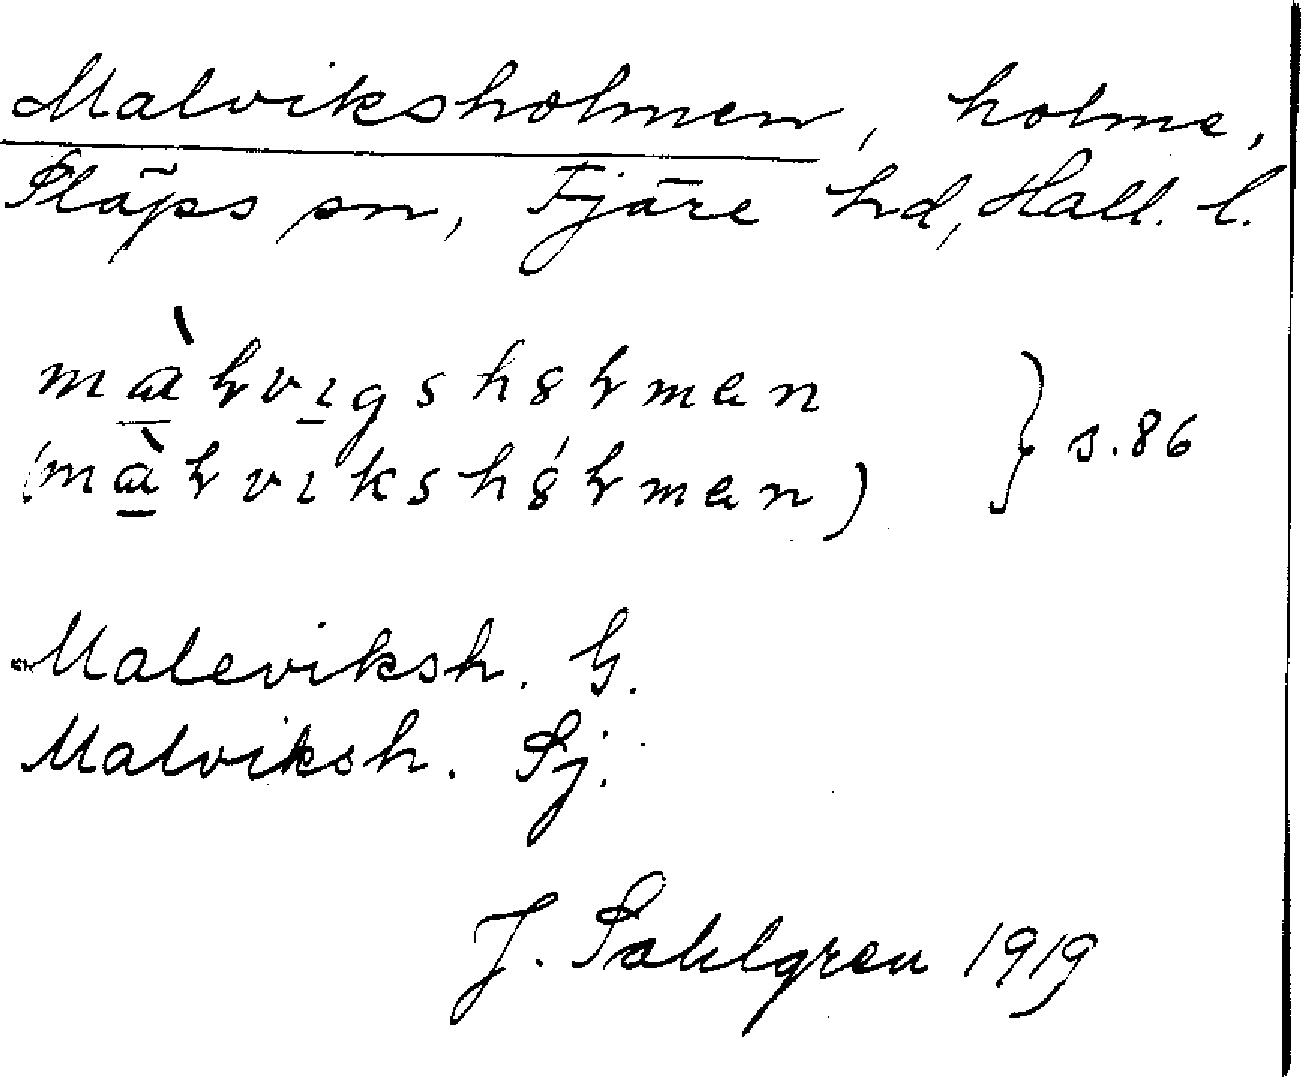 Malviksholmen, holme,
Släps sn, Fjäre hd, Hall. l.
s. 86
Maleviksh. G.
Malviksh. Sj.
J. Sahlgren 1919